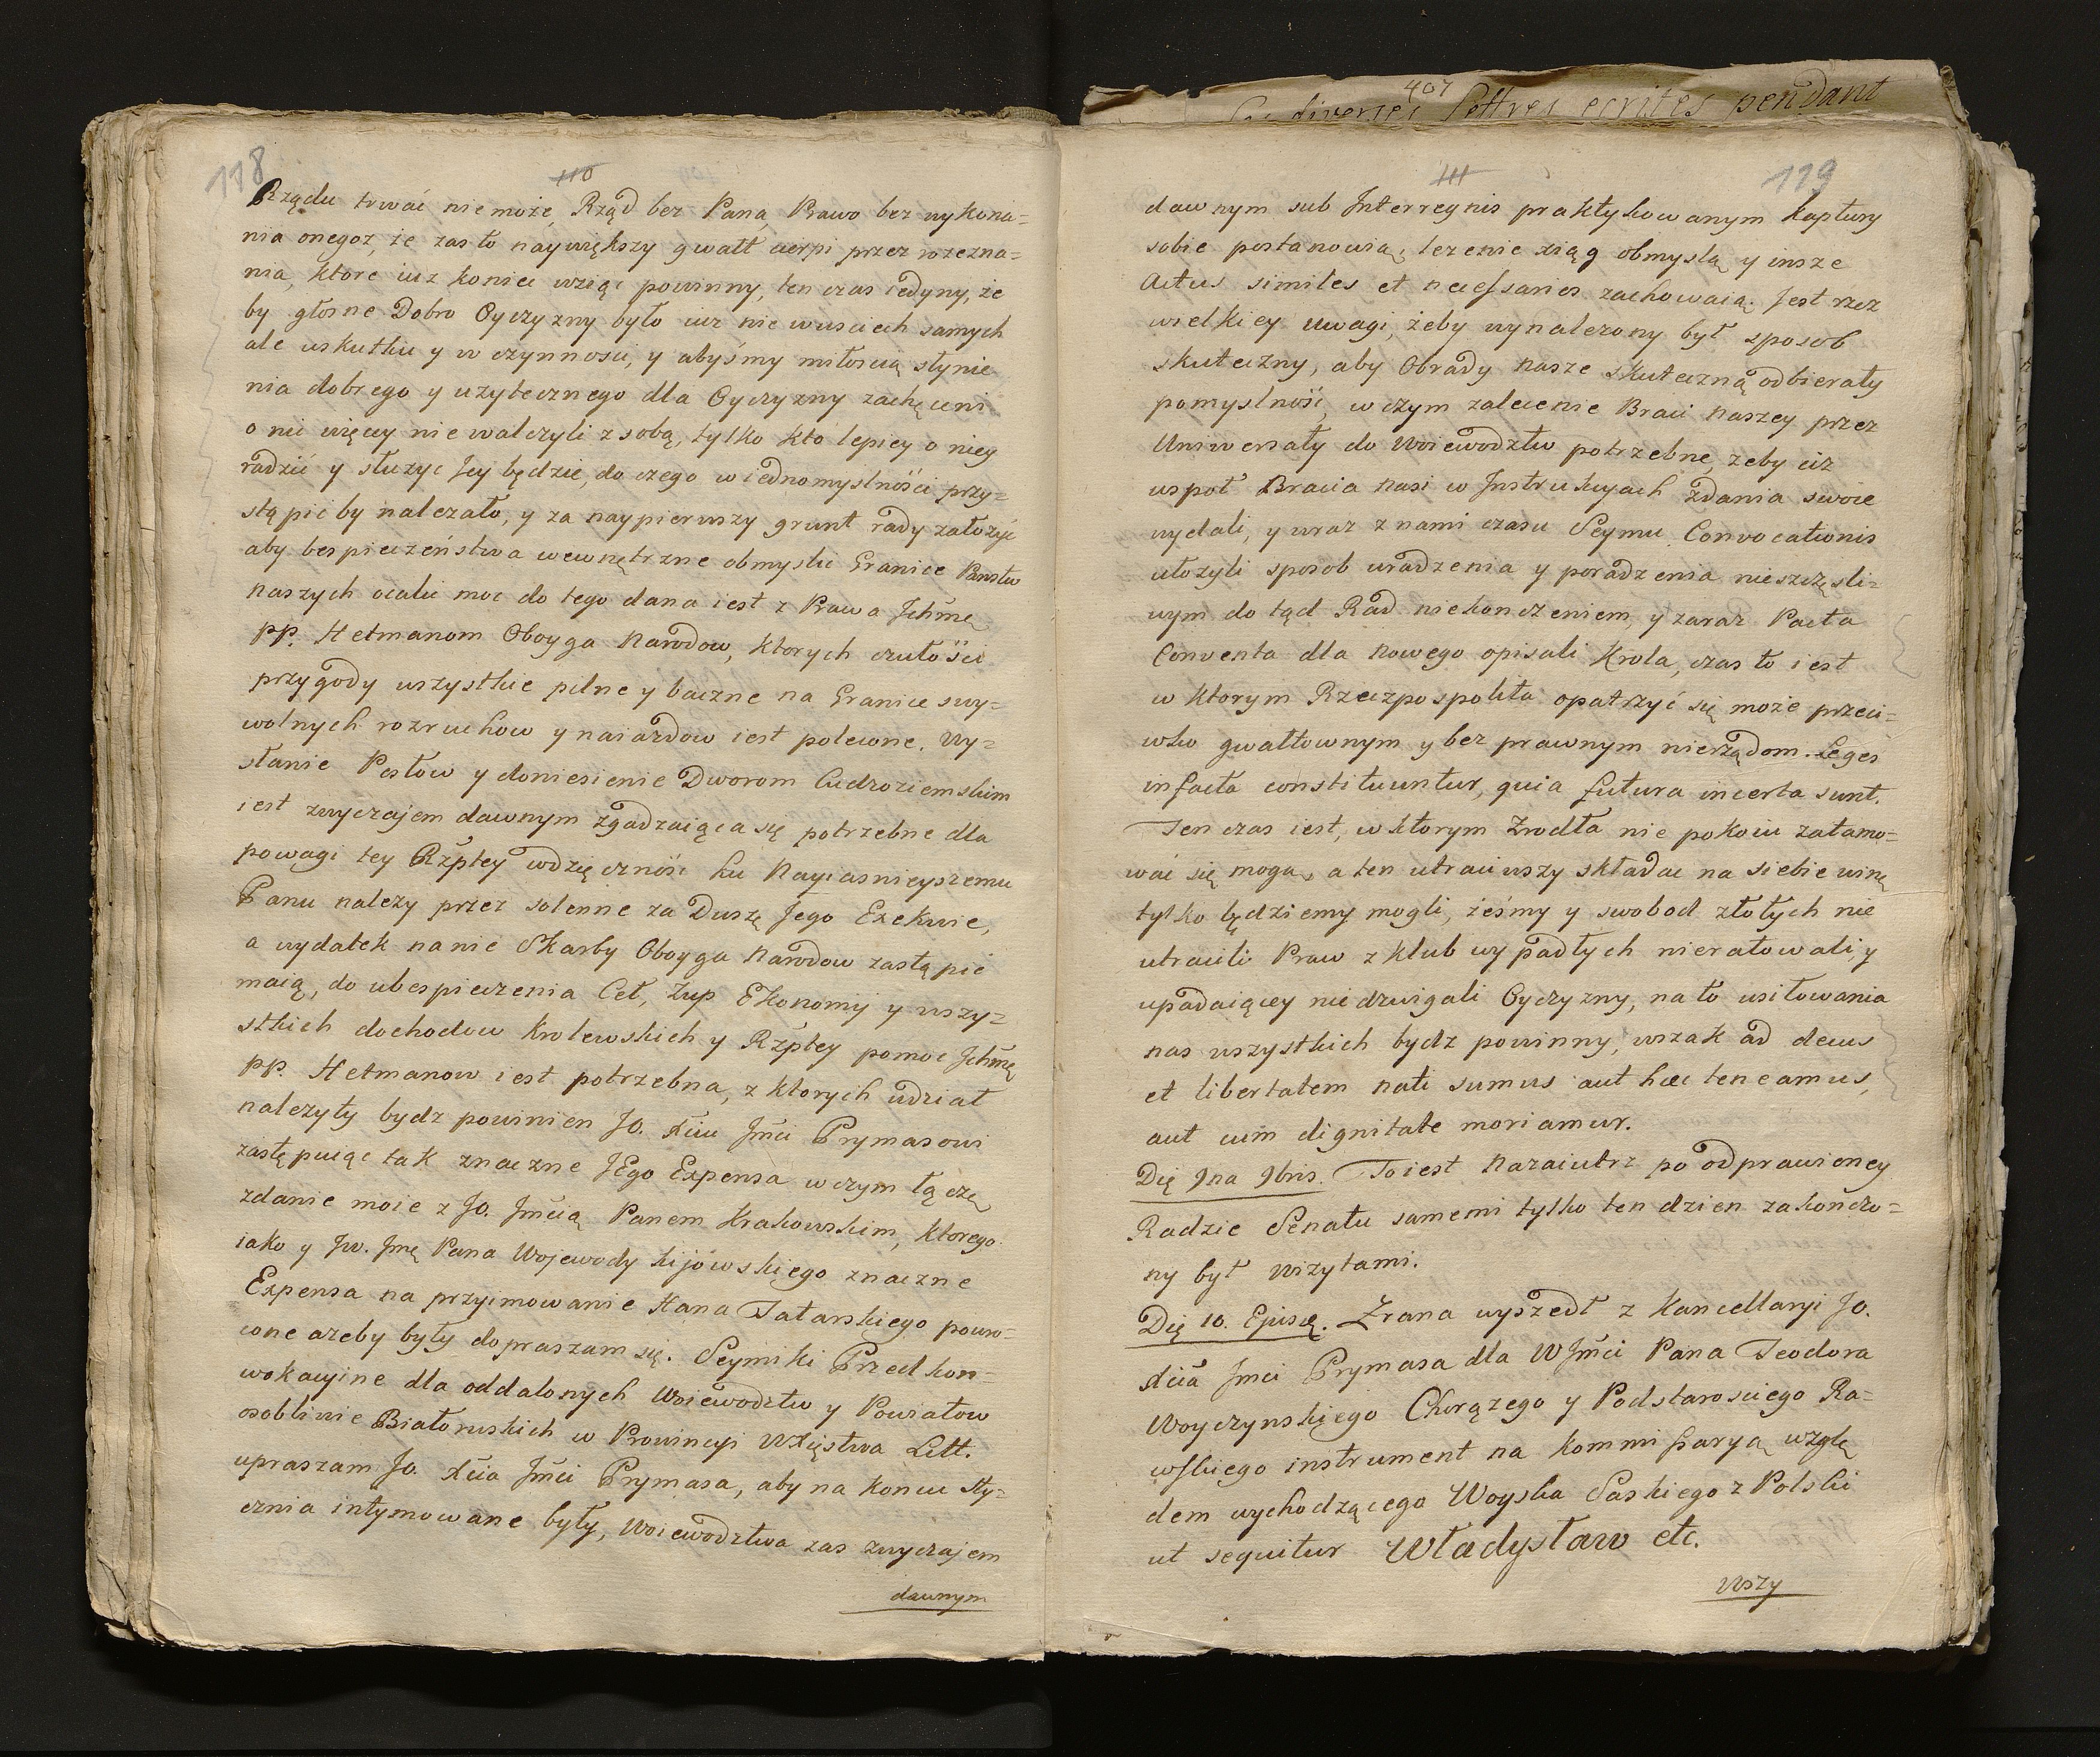 118
110
Rządu trwać niemoże, Rząd bez Pana, Prawo bez wykona=
nia onegoż, że zas to naywiększy gwałt cierpi przez rozezna=
nia, ktore iuz koniec wziąć powinny, ten czas iedyny, że
by głosne Dobro Oyczyzny było iuz nie wusciech samych
ale wskutku y w czynnosci, y abyśmy miłoscią słynie
nia dobrego y uzytecznego dla Oyczyzny zachęceni
o nic więcey nie walczyli z sobą, tylko kto lepiey o niey
radzić y służyc Jey będzie, do czego w iednomyslnósci przy=
stąpić by nalezało, y za naypierwszy grunt rady założyć
aby bespieczeństwa wewnętrzne obmyslic Granice Panstw
naszych ocalic moc do tego dana iest z Prawa Jchmę
PP. Hetmanom Oboyga Narodow, ktorych czułości
przygody wszystkie pilne y baczne na Granice swy=
wolnych rozruchow y naiazdow iest polecone. Wy=
słanie Posłow y doniesienie Dworom Cudzoziemskim
iest zwyczajem dawnym zgadzaiąca się potrzebne dla
powagi tey Rzptey wdzięcznósc ku Nayiasnieyszemu
Panu nalezy przez solenne za Duszę Jego Exekwie,
a wydatek na nie Skarby Oboyga Narodow zastąpić
maią, do ubespieczenia Ceł, Żup Ekonomij y wszy=
stkich dochodow Krolewskich y Rzptey pomoc Jchmę
PP. Hetmanow iest potrzebna, z ktorych udział
nalezyty bydz powinien JO. Xciu Jmci Prymasowi
zastępuiąc tak znaczne JEgo Expensa w czym łączę
zdanie moie z JO. Jmcią Panem Krakowskim, ktorego
iako y Jw. Jmę Pana Wojewody kijówskiego znaczne
Expensa na przyimowanie Hana Tatarskiego powro=
cone azeby były dopraszam się. Seymiki Przedkon=
wokacyine dla oddalonych Woiewodztw y Powiatow
osobliwie Białoruskich w Prowincyi WXięstwa Litt.
upraszam JO. Xcia Jmci Prymasa, aby na koncu Sty=
cznia intymowane były, Woiewodztwa zas zwyczajem
dawnym
407
diverses Lettres ecrites pendant
111
119
dawnym sub Interregnis praktykowanym kaptury
sobie postanowią, lezenie xiąg obmyslą y insze
Actus similes et necessarios zachowaią. Jest rzez
wielkiey uwagi, żeby wynalezony był sposob
skuteczny, aby Obrady nasze skuteczną odbierały
pomyslność, w czym zalecenie Braci naszey przez
Uniwersały do Woiewodztw potrzebne, zeby ciż
wspoł Bracia nasi w Instrukcyach zdania swoie
wydali, y wraz z nami czasu Seymu Convocationis
ułozyli sposob uradzenia y poradzenia nieszczęsli=
wym do tąd Rad niekonczeniem, y zaraz Pacta
Conventa dla nowego opisali Krola, czas to iest
w ktorym Rzeczpospolita opatrzyć się może przeci=
wko gwałtownym y bez prawnym nierządom. Leges
in facta constituuntur, quia futura incerta sunt.
Ten czas iest, w ktorym Zrodła nie pokoiu zatamo=
wać się mogą, a ten utraciwszy składac na siebie winę
tylko będziemy mogli, żeśmy y swobod złotych nie
utracili Praw z klub wypadłych nieratowali, y
upadaiącey nie dzwigali Oyczyzny, na to usiłowania
nas wszystkich bydz powinny, wszak ad decus
et libertatem nati sumus aut hæc teneamus,
aut cum dignitate moriamur.
Dię 9na 9bris. To iest Nazaiutrz po odprawioney
Radzie Senatu samemi tylko ten dzien zakończo=
ny był wizytami.
Dię 10. Ejusdę. Zrana wyszedł z kancellaryi JO.
Xcia Jmci Prymasa dla WJmci Pana Teodora
Woyczynskiego Chorązego y Podstarosciego Ra=
wskiego instrument na Kommissaryą wzglę
dem wychodzącego Woyska Saskiego z Polski
ut sequitur Władysław etc.
Wszy